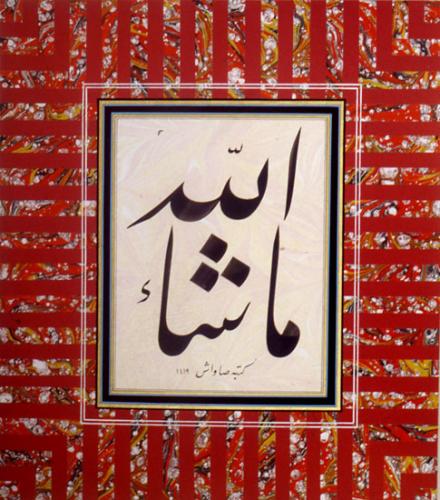 ما شاء
الله
كتبه صاواش ١٤١٩